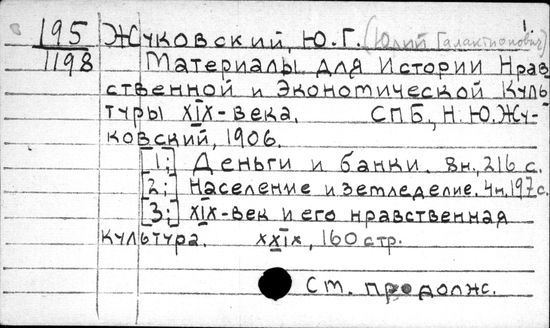 195 Жуковский, Ю.Г. (Юлий Галактионович)
1198 Материалы для истории Нрав
ственной и Экономической Куль
туры XIX-века. СПБ, Н.Ю.Жу-
ковский, 1906.
[1:] Деньги и банки. 8н., 216 с.
[2:] Население и земледелие. 4н, 197 с.
[3:] XIX-век и его нравственная
культура. XXIX, 160 стр.
См. продолж.